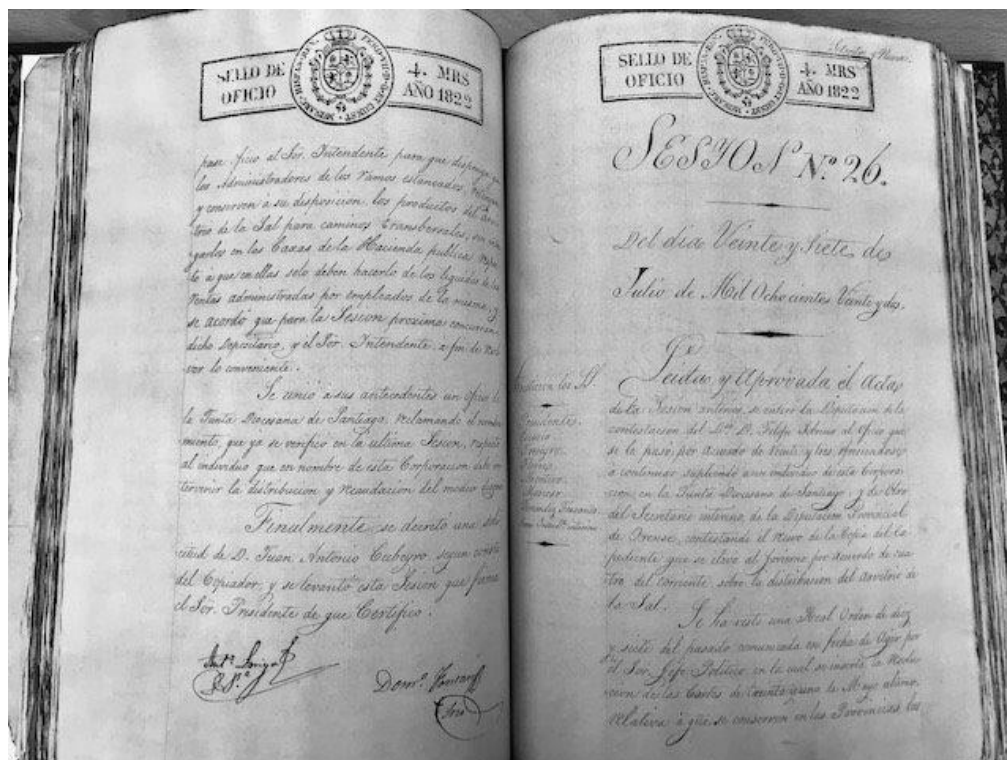 SELLO DE OFICIO
4. MRS AÑO 1822
pase oficio al Sor. Intendente para que disponga que
los Administradores de los ramos estancados,
y conserven a su disposicion, los productos del Arvi
trio de la Sal para caminos transbersales, sin
garlos en las Caxas de la Hacienda publica
to a que en ellas solo deben hacerlo de los liquidos de las
rentas administradas por empleados de la misma; y
se acordó que para la Sesion proxima concurran
dicho Depositario, y el Sor. Intendente a fin de
lo conveniente.
Se unio a sus antecedentes un oficio de
la Junta Diocesana de Santiago, reclamando el nombra
miento, que ya se verificó en la ultima Sesion,
al individuo que en nombre de esta Corporacion debe in
tervenir la distribucion y recaudacion del medio
Finalmente se decretó una soli
citud de D. Juan Antonio Cubeyro segun consta
del Copiador, y se levantó esta Sesion que firma
el Sor. Presidente de que Certifico.
SELLO DE OFICIO
4. MRS AÑO 1822
SESYON Nº. 26.
Del dia Veinte y Siete de
Julio de Mil Ochocientos Veinte y dos.
Leida y Aprovada el Acta
de la Sesion anterior, se enteró la Diputacion de la
contestacion del D. Felipe al Oficio que
se le pasó por Acuerdo de Veinte y tres,
a continuar supliendo a un individuo de esta Corpora
cion en la Junta Diocesana de Santiago; y de Otro
del Secretario interino de la Diputacion Provincial
de Orense, contestando el recivo de la Copia del Ex
pediente que se elevó al Govierno por acuerdo de cua
tro del corriente, sobre la distribucion del Arvitrio de
la Sal.
Se ha visto una Real Orden de diez
y siete del pasado comunicada en fecha de Ayer por
el Sor. Jefe Politico en la cual se inserta la Resolu
cion de las Cortes de treinta y uno de Mayo ultimo,
relativa a que se conserven en las Provincias los